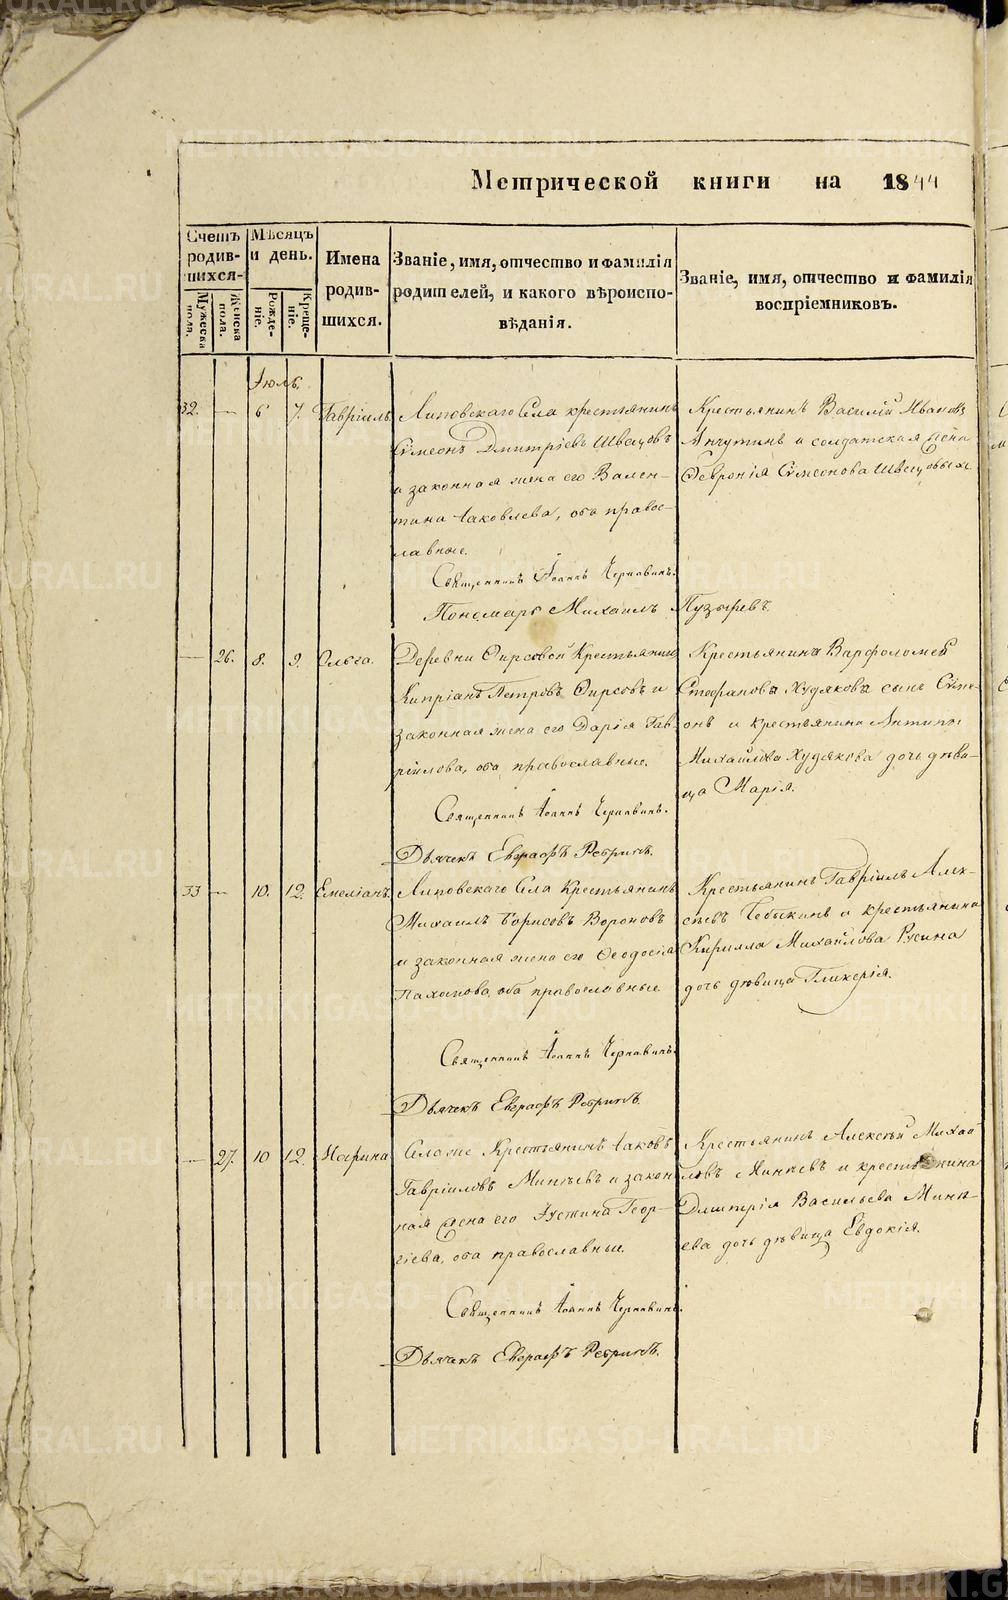 Метрической книги на 1844
Счетъ родив-шихся.
Мужеска пола.
Женска пола.
Мѣсяцъ и день.
Рожде-ніе.
Креще-ніе.
Имена родив-шихся.
Званіе, имя, отчество и фамилія родителей, и какого вѣроиспо-вѣданія.
Званіе, имя, отчество и фамилія воспріемниковъ.
Іюль.
32. — 6 7. Гавріилъ.
Липовскаго Села крестьянинъ
Сѵмеонъ Дмитріевъ Швецовъ
и законная жена его Вален-
тина Іаковлева, оба право-
славные.
Священникъ Іоаннъ Чернавинъ.
Пономарь Михаилъ Пузыревъ.
Крестьянинъ Василій Ивановъ
Анчутинъ и солдатская жена
Февронія Сѵмеонова Швецовыхъ.
— 26. 8. 9. Ольга.
Деревни Фирсовой Крестьянинъ
Кипріанъ Петровъ Фирсовъ и
законная жена его Дарія Гав-
ріилова, оба православные.
Священникъ Іоаннъ Чернавинъ.
Дьячекъ Евграфъ Ребринъ.
Крестьянина Варфоломей
Стефанова Худякова сынъ Сѵме-
онъ и крестьянина Антипы
Михайлова Худякова дочь дѣви-
ца Марія.
33 — 10. 12. Емеліанъ.
Липовскаго Села Крестьянинъ
Михаилъ Борисовъ Вороновъ
и законная жена его Феодосія
Пахомова, оба православные
Священникъ Іоаннъ Чернавинъ.
Дьячекъ Евграфъ Ребринъ.
Крестьянинъ Гавріилъ Алек-
сѣевъ Чебыкинъ и крестьянина
Кирилла Михайлова Русина
дочь дѣвица Гликерія.
— 27. 10 12. Марина
Села же Крестьянинъ Іаковъ
Гавріиловъ Минѣевъ и закон-
ная жена его Іустина Геор-
гіева, оба православные.
Священникъ Іоаннъ Чернавинъ.
Дьячекъ Евграфъ Ребринъ.
Крестьянинъ Алексѣй Михай-
ловъ Минѣевъ и крестьянина
Дмитрія Васильева Минѣ-
ева дочь дѣвица Евдокія.
METRIKI.GASO-URAL.RU